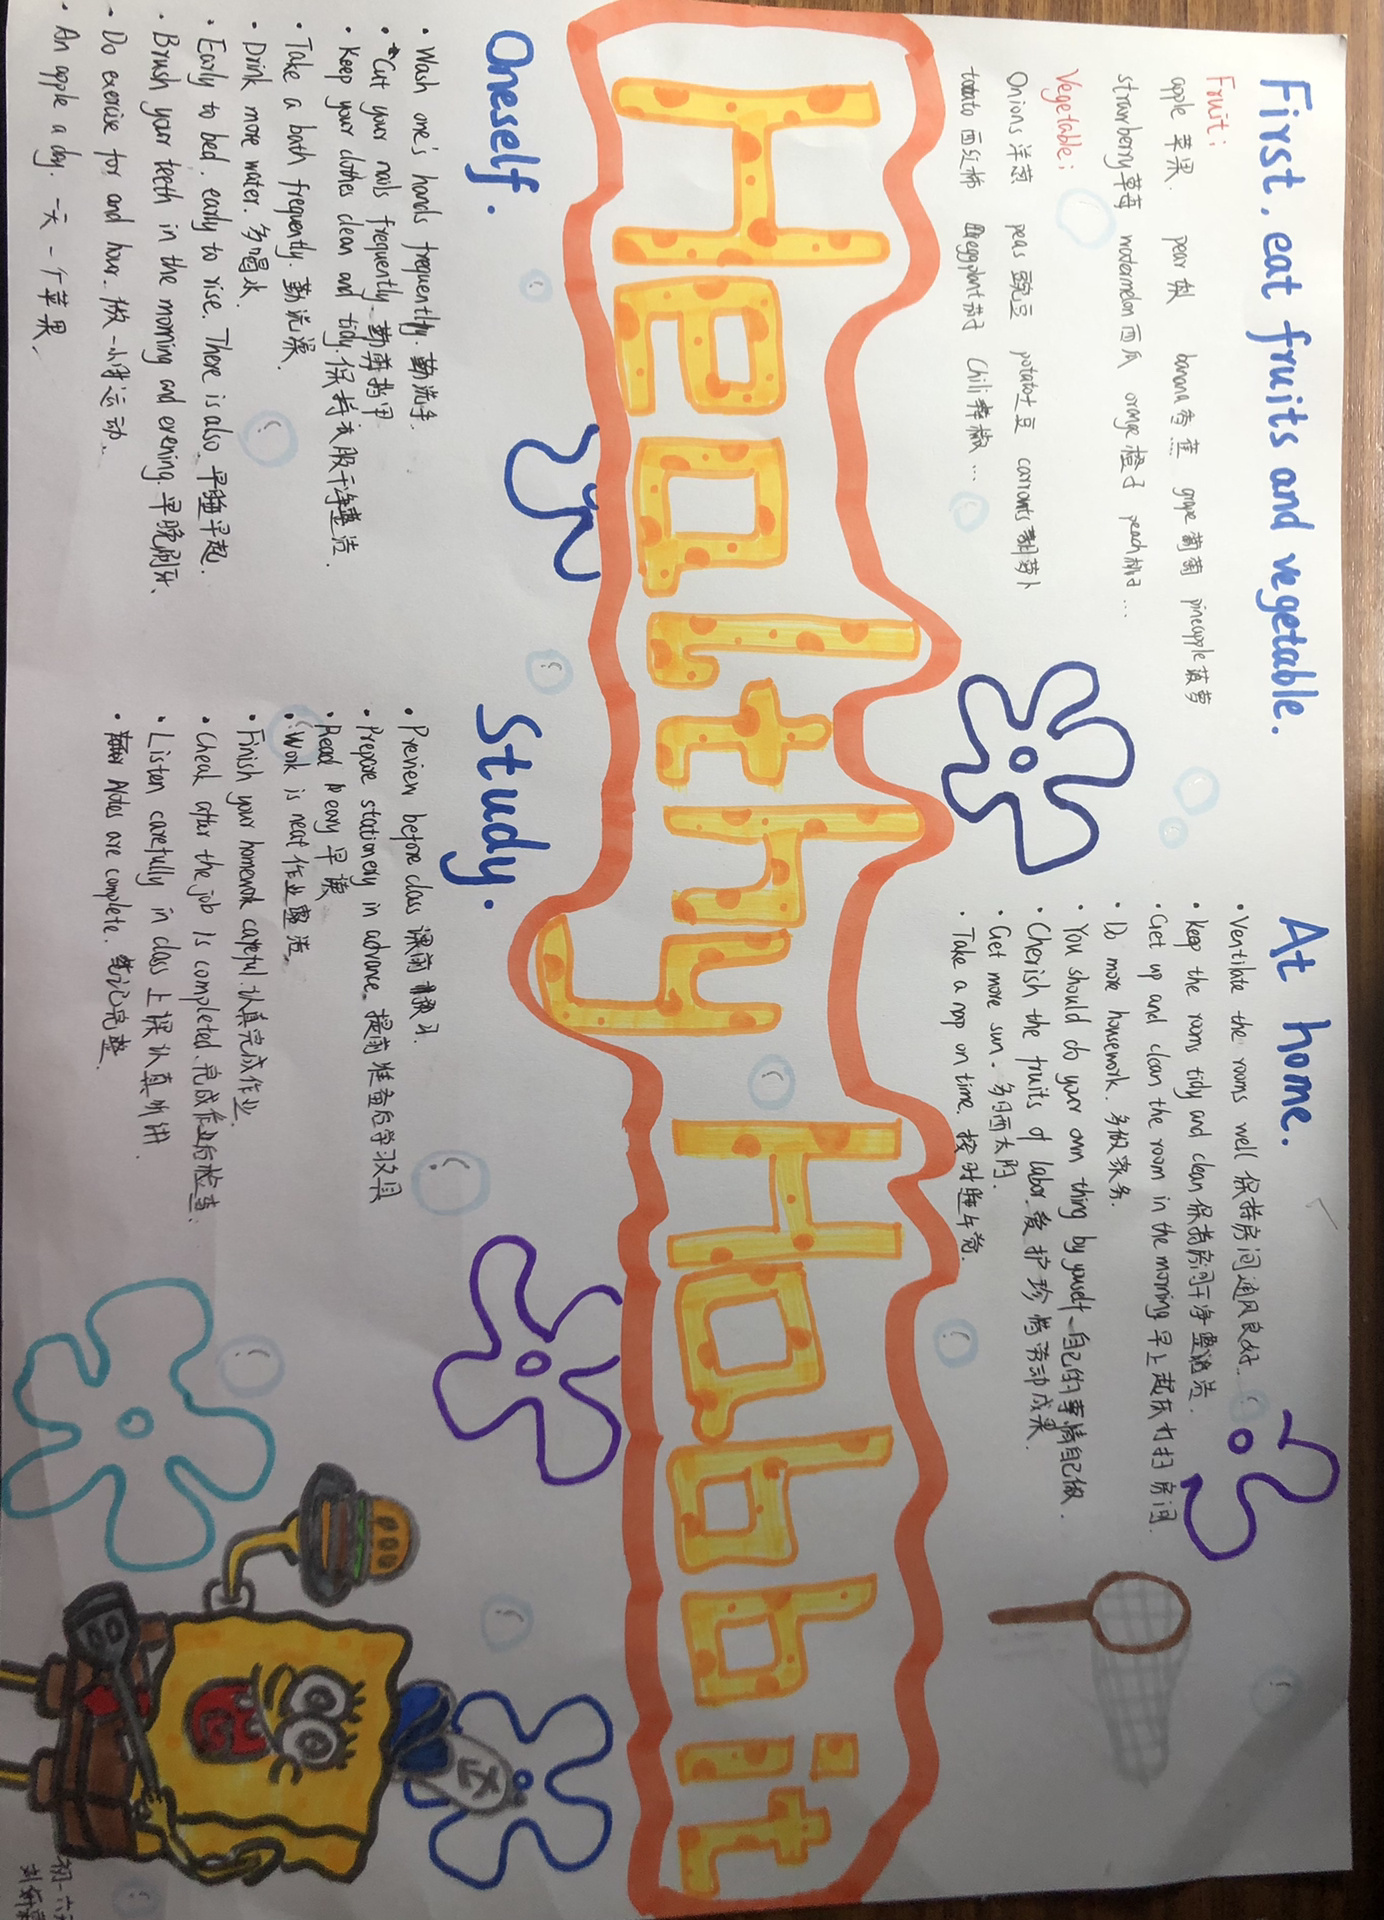 First, eat fruits and vegetable.
Fruit:
apple 苹果. pear 梨 banana 香蕉 grape 葡萄 pineapple 菠萝
strawberry 草莓 watermelon 西瓜 orange 橙子 peach 桃子...
Vegetable:
Onions 洋葱 peas 豌豆 potato 土豆 carronts 胡萝卜
tomato 西红柿 eggplant 茄子 Chili 辣椒...
At home.
· Ventilate the rooms well 保持房间通风良好.
· keep the rooms tidy and clean 保持房间干净整洁.
· Get up and clean the room in the morning 早上起床打扫房间.
· Do more housework. 多做家务.
· You should do your own thing by youself. 自己的事情自己做.
· Cherish the fruits of labor. 爱护珍惜劳动成果.
· Get more sun. 多晒太阳.
· Take a nap on time. 按时睡午觉.
Healthy Habbit
Oneself.
· Wash one's hands frequently. 勤洗手.
· Cut your nails frequently 勤剪指甲
· Keep your clothes clean and tidy. 保持衣服干净整洁.
· Take a bath frequently. 勤洗澡.
· Drink more water. 多喝水.
· Early to bed. early to rise. There is also. 早睡早起.
· Brush your teeth in the morning and evening. 早晚刷牙.
· Do exercise for and hour. 做一小时运动.
· An apple a day. 一天一个苹果.
Study.
· Preview before class 课前预习.
· Prepare stationery in advance. 提前准备后学习文具
· Read 早读
· Work is neat 作业整洁.
· Finish your homework capeful. 认真完成作业.
· Cheak after the job is completed. 完成作业后检查.
· Listen carefully in class 上课认真听讲.
· Notes are complete. 笔记完整.
初一六